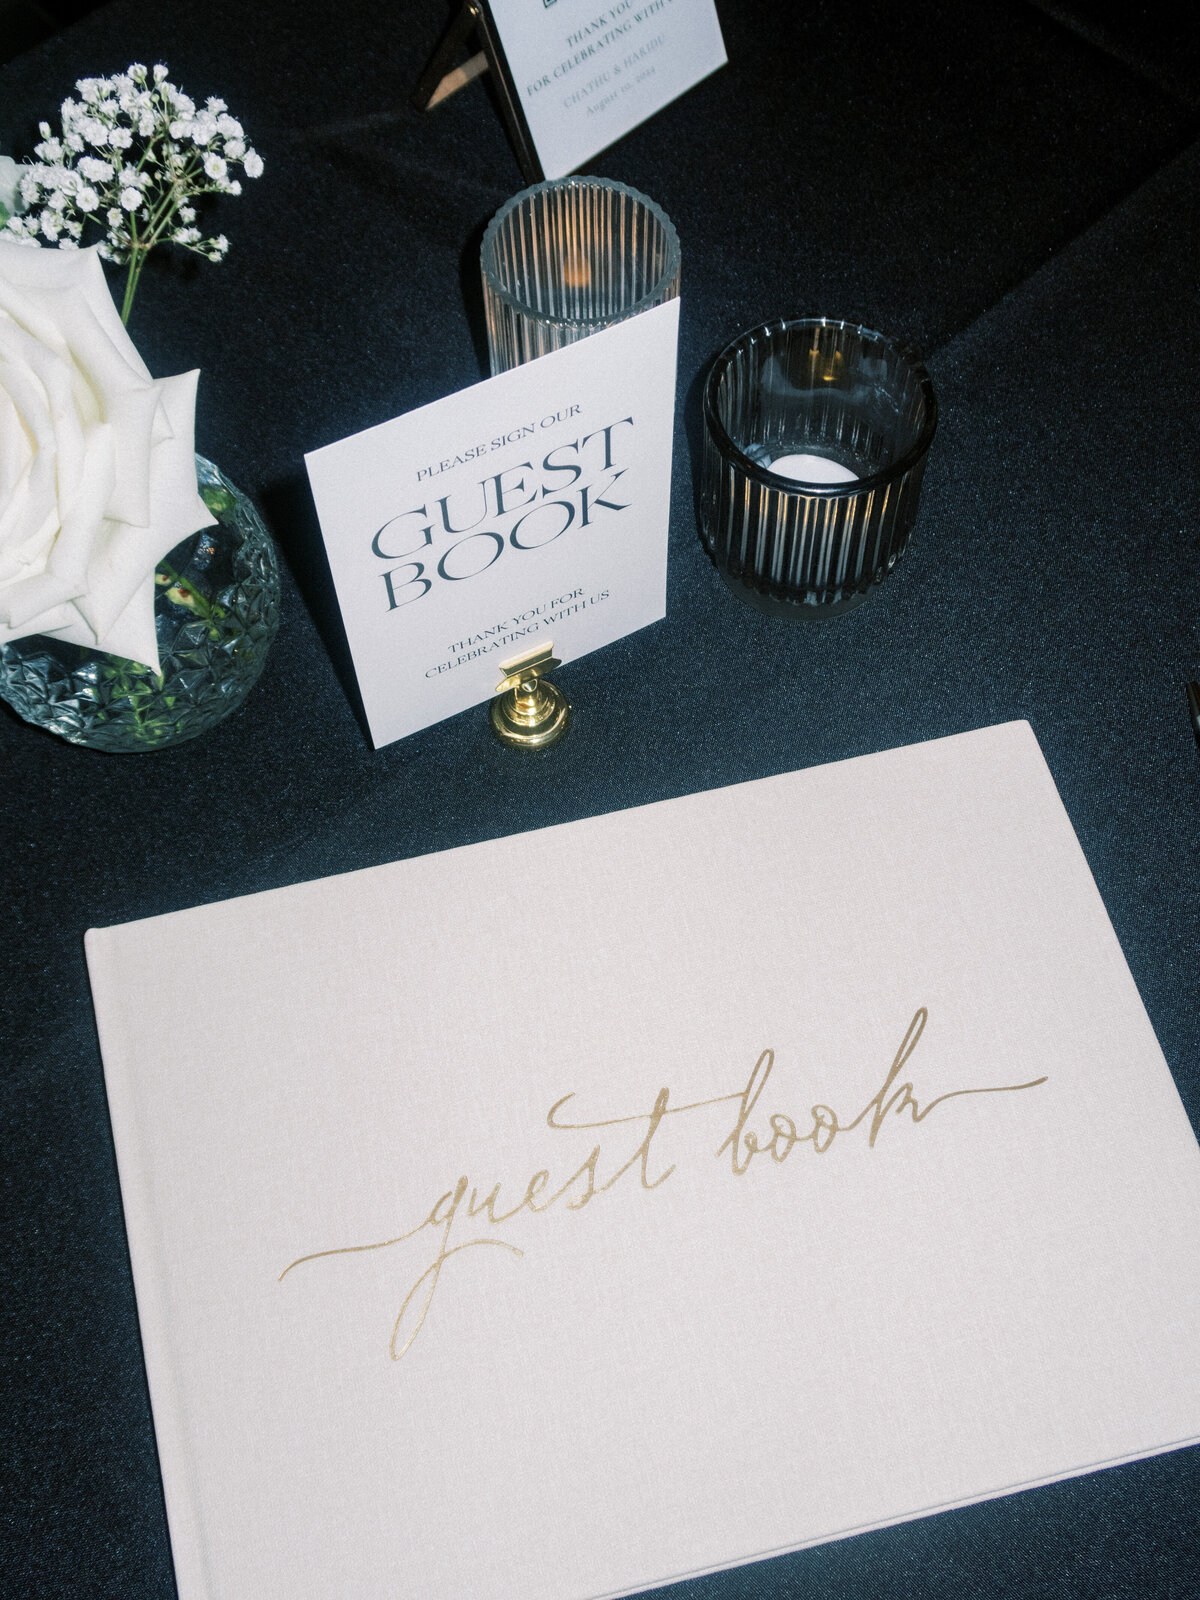 THANK YOU
FOR CELEBRATING WITH
CHATHU & HARIDU
August 10, 2024
PLEASE SIGN OUR
GUEST
BOOK
THANK YOU FOR
CELEBRATING WITH US
guest book